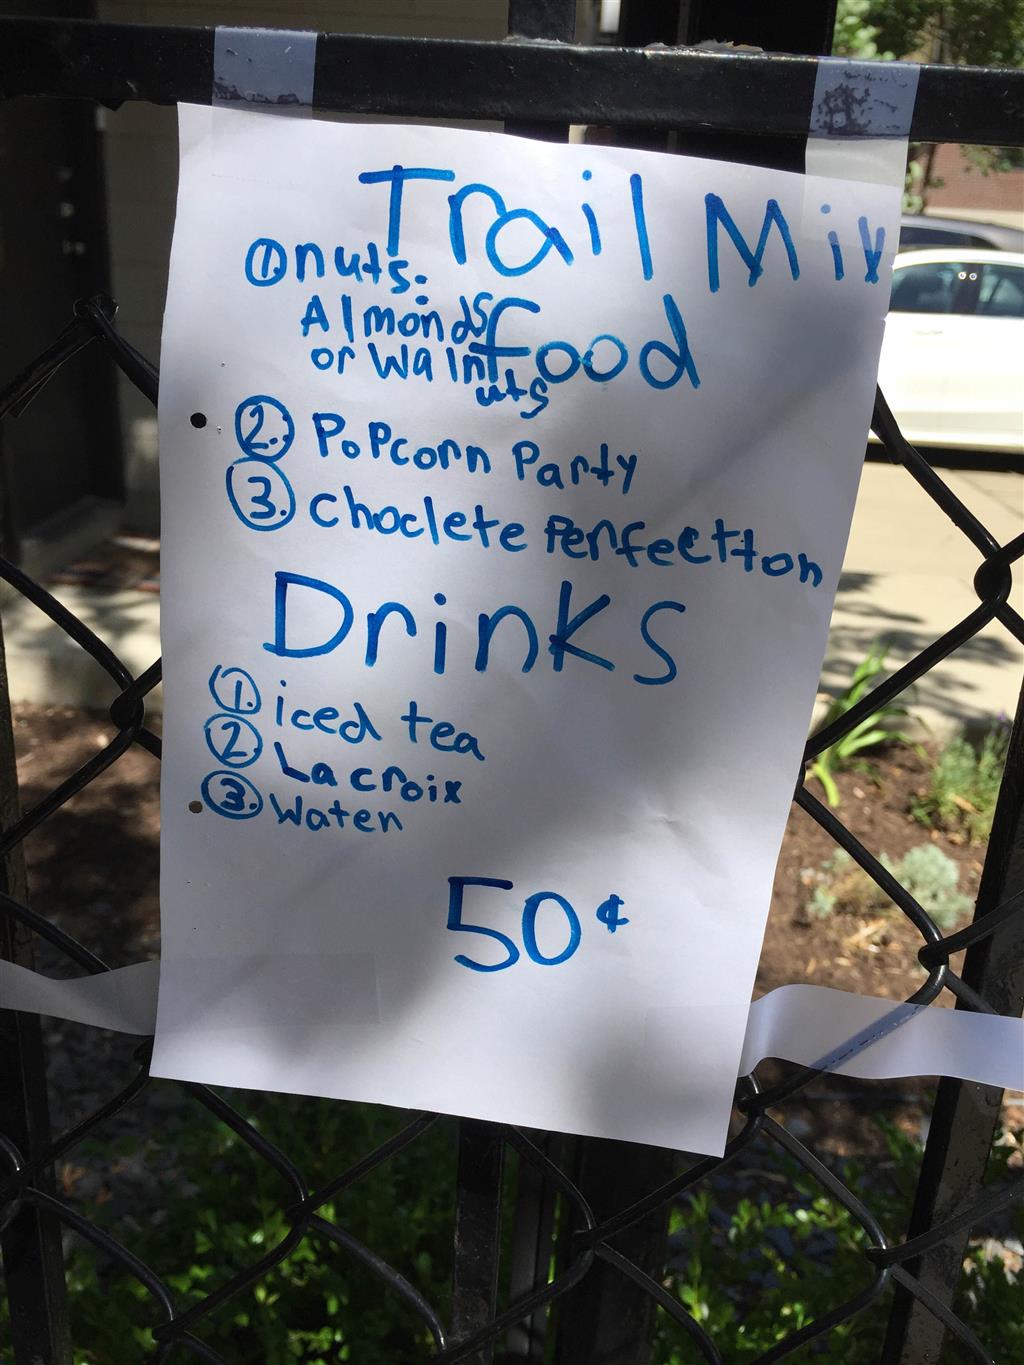 Trail Mix
food
1. nuts:
Almonds
or Walnuts
2. Popcorn Party
3. Choclete Perfection
Drinks
1. iced tea
2. La croix
3. Water
50¢